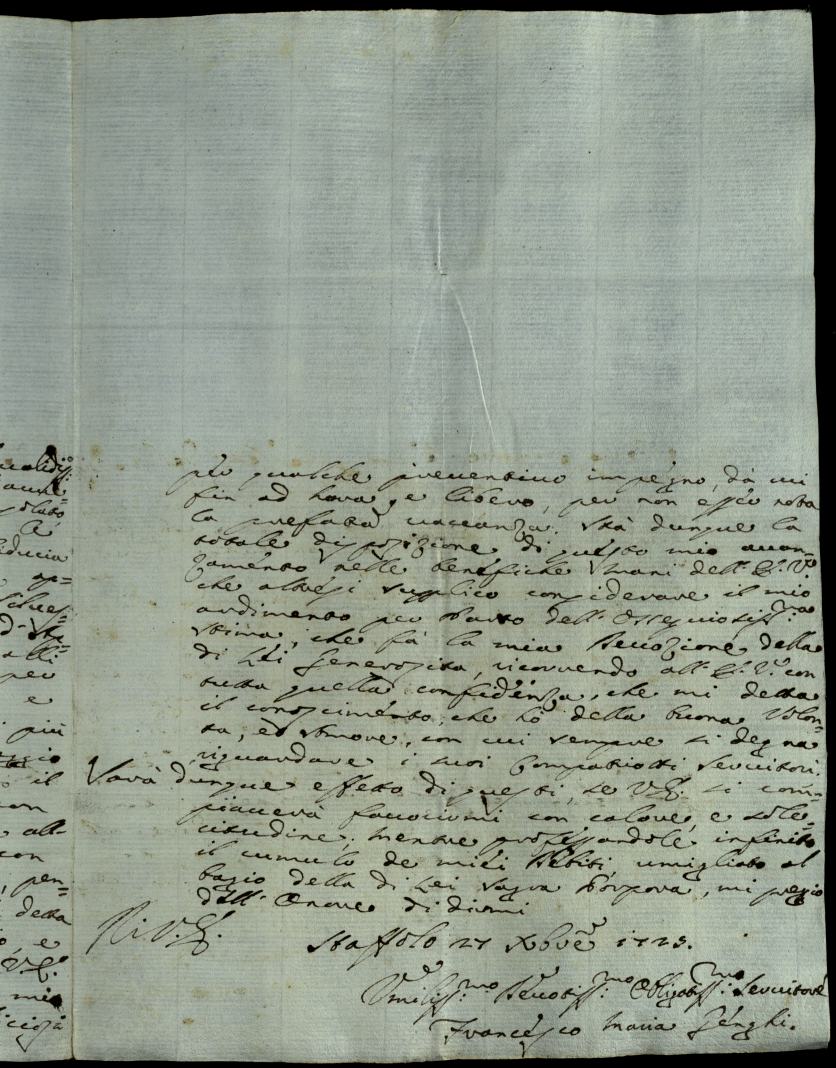 per qualche preventivo impegno, da cui
fin ad hora, è libero, per non esser nota
la prefata vaccanza. Stà dunque la
totale disposizione di questo mio avan=
zamento nelle benefiche mani dell' E. V.
che altresì supplico considerare il mio
ardimento per Parto dell' Ossequiosiss.ma
stima, che fà la mia Devozione della
di Lei Generosità, ricorrendo all' E. V. con
tutta quella confidenza, che mi detta
il conoscimento, che hò della buona Volon=
tà, ed Amore, con cui sempre si degna
riguardare i suoi Compatriotti Servitori.
Sarà dunque effetto di questi, se V. E. si com=
piacerà favorirmi con calore, e sole=
citudine; mentre professandole infinito
il cumulo de miei Debiti, umigliato al
bagio della di Lei Sagra Porpora, mi pregio
dell' Onore di dirmi
Di V. E.
Staffolo 27 Xbre 1723.
Umiliss.mo Devotiss.mo Obligatiss.mo Servitore
Francesco Maria Genghi.
fiducia
ap=
per
e
più
il
con
all=
con
pen=
detta
e
V. E.
mio